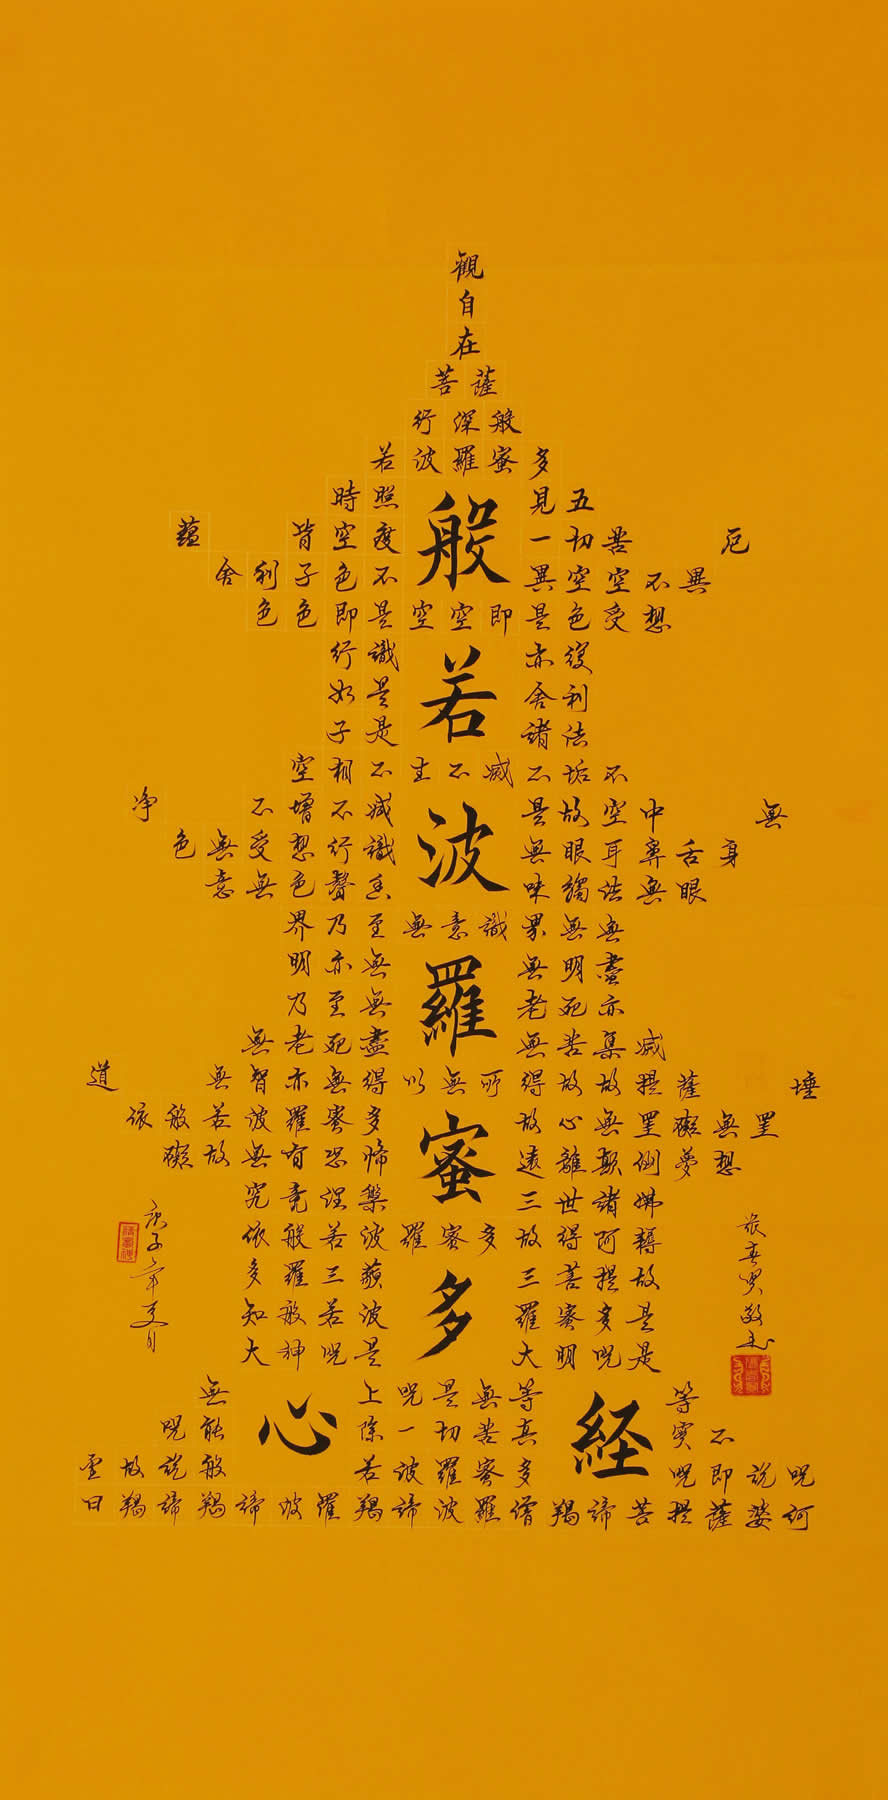 觀
自
在
菩薩
行深般
若波羅蜜多
時照見五
蘊皆空度一切苦厄
舍利子色不異空空不異
色色即是空空即是色受想
行識亦復
如是舍利
子是諸法
空相不生不滅不垢不
净不增不減是故空中無
色無受想行識無眼耳鼻舌身
意無色聲香味觸法無眼
界乃至無意識界無無
明亦無無明盡
乃至無老死亦
無老死盡無苦集減
道無智亦無得以無所得故提薩埵
依般若波羅蜜多故心無罣礙無罣
礙故無有恐怖遠離顛倒夢想
究竟涅槃三世諸佛
依般若波羅蜜多故得阿耨
多羅三藐三菩提故
知般若波羅蜜多是
大神呪是大明呪是
無上呪是無等等
呪能除一切苦真实不
虛故說般若波羅蜜多呪即說呪
曰羯諦羯諦波羅羯諦波羅僧羯諦菩提薩婆訶
般若波羅蜜多心経
庚子年夏月